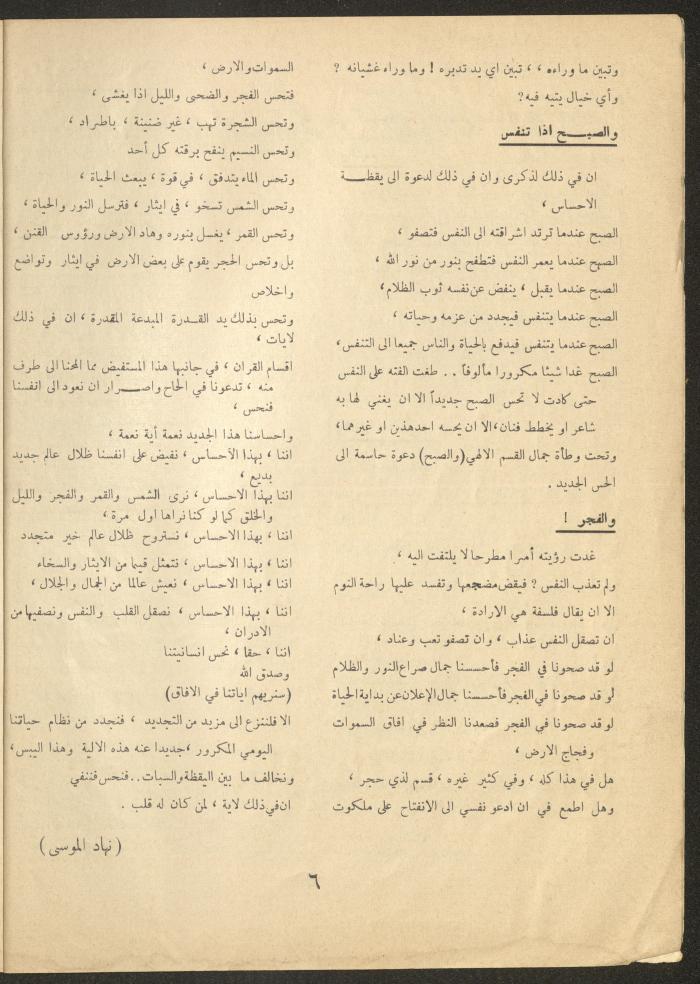 وتبين ما وراءه ، ، تبين اي يد تدبره ! وما وراء غشيانه ؟
وأي خيال يتيه فيه؟
والصبــح اذا تنفس
ان في ذلك لذكرى وان في ذلك لدعوة الى يقظــة
الاحساس ،
الصبح عندما ترتد اشراقته الى النفس فتصفو ،
الصبح عندما يعمر النفس فتطفح بنور من نور الله ،
الصبح عندما يقبل ، ينفض عن نفسه ثوب الظلام،
الصبح عندما يتنفس فيجدد من عزمه وحياته ،
الصبح عندما يتنفس فيدفع بالحياة والناس جميعا الى التنفس،
الصبح غدا شيئا مكرورا مألوفاً . . طغت الفته على النفس
حتى كادت لا تحس الصبح جديداً الا ان يغني لها به
شاعر او يخطط فنان، الا ان يحسه احد هذين او غيرهما،
وتحت وطأة جمال القسم الالهي (والصبح) دعوة حاسمة الى
الحس الجديد .
والفجر !
غدت رؤيته أمرا مطرحا لا يلتفت اليه ،
ولم تعذب النفس ؟ فيقض مضجعها وتفسد عليها راحة النوم
الا ان يقال فلسفة هي الارادة ،
ان تصقل النفس عذاب ، وان تصفو تعب وعناد ،
لو قد صحونا في الفجر فأحسسنا جمال صراع النور والظلام
لو قد صحونا في الفجر فأحسسنا جمال الإعلان عن بداية الحياة
لو قد صحونا في الفجر فصعدنا النظر في افاق السموات
وفجاج الارض ،
هل في هذا كله ، وفي كثير غيره ، قسم لذي حجر ،
وهل اطمع في ان ادعو نفسي الى الانفتاح على ملكوت
السموات والارض ،
فتحس الفجر والضحى والليل اذا يغشى ،
وتحس الشجرة تهب ، غير ضنينة ، باطراد ،
وتحس النسيم ينفح برقته كل أحد
وتحس الماء يتدفق ، في قوة ، يبعث الحياة ،
وتحس الشمس تسخو ، في ايثار ، فترسل النور والحياة ،
وتحس القمر ، يغسل بنوره وهاد الارض ورؤوس القنن ،
بل وتحس الحجر يقوم على بعض الارض في ايثار وتواضع
واخلاص
وتحس بذلك يد القــدرة المبدعة المقدرة ، ان في ذلك
لايات ،
اقسام القران ، في جانبها هذا المستفيض مما المحنا الى طرف
منه ، تدعونا في الحاح واصــرار ان نعود الى انفسنا
فنحس ،
واحساسنا هذا الجديد نعمة أية نعمة ،
اننا ، بهذا الاحساس ، نفيض على انفسنا ظلال عالم جديد
بديع ،
اننا بهذا الاحساس ، نرى الشمس والقمر والفجر والليل
والخلق كما لو كنا نراها اول مرة ،
اننا ، بهذا الاحساس ، نستروح ظلال عالم خير متجدد
اننا ، بهذا الاحساس ، نتمثل قيما من الايثار والسخاء
اننا ، بهذا الاحساس ، نعيش عالما من الجمال والجلال ،
اننا ، بهذا الاحساس ، نصقل القلب والنفس ونصفيها من
الادران ،
اننا ، حقا ، نحس انسانيتنا
وصدق الله
(سنريهم اياتنا في الافاق)
الا فلننزع الى مزيد من التجديد ، فنجدد من نظام حياتنا
اليومي المكرور ، جديدا عنه هذه الالية وهذا اليبس،
ونخالف ما بين اليقظة والسبات. . فنحس فننفي
ان في ذلك لاية ، لمن كان له قلب .
( نهاد الموسى )
٦